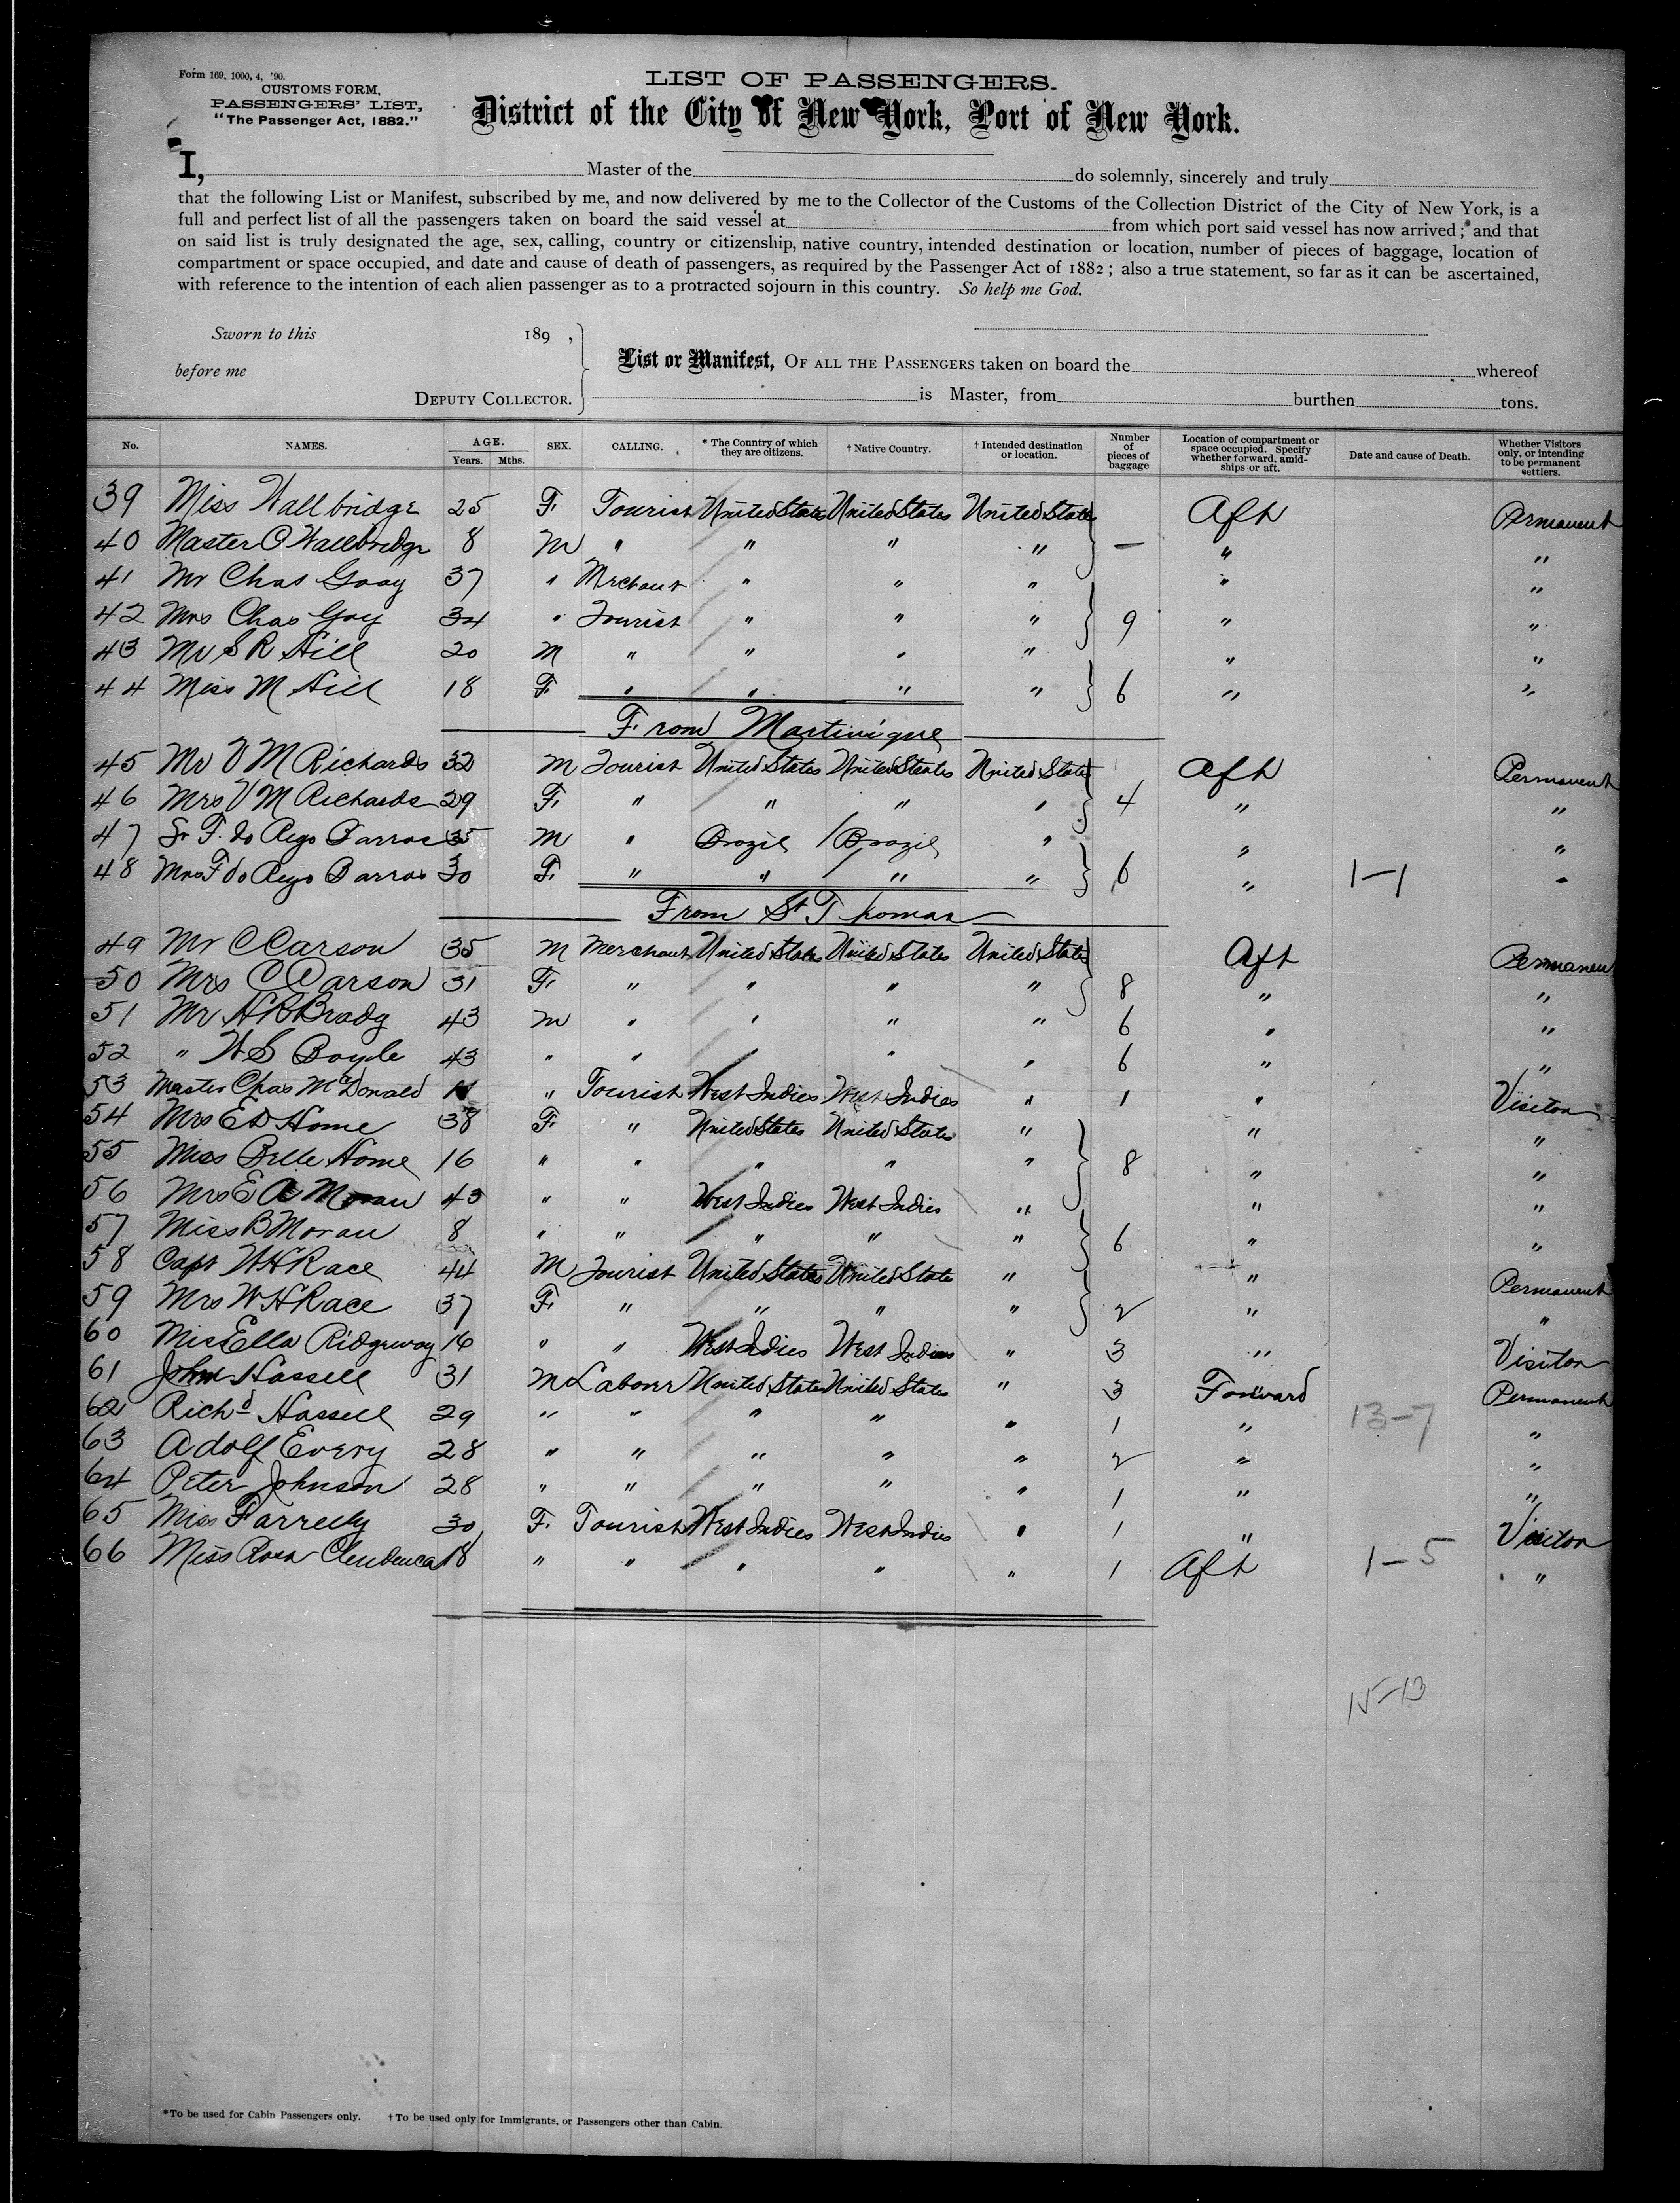 Form 169, 1000, 4, '90.
CUSTOMS FORM,
PASSENGERS' LIST,
"The Passenger Act, 1882."
LIST OF PASSENGERS.
District of the City of New York, Port of New York.
I, Master of the do solemnly, sincerely and truly
that the following List or Manifest, subscribed by me, and now delivered by me to the Collector of the Customs of the Collection District of the City of New York, is a
full and perfect list of all the passengers taken on board the said vessel at from which port said vessel has now arrived; and that
on said list is truly designated the age, sex, calling, country or citizenship, native country, intended destination or location, number of pieces of baggage, location of
compartment or space occupied, and date and cause of death of passengers, as required by the Passenger Act of 1882; also a true statement, so far as it can be ascertained,
with reference to the intention of each alien passenger as to a protracted sojourn in this country. So help me God.
Sworn to this 189 ,
before me
DEPUTY COLLECTOR.
List or Manifest, OF ALL THE PASSENGERS taken on board the whereof
is Master, from burthen tons.
No. NAMES. AGE. Years. Mths. SEX. CALLING. * The Country of which they are citizens. † Native Country. † Intended destination or location. Number of pieces of baggage Location of compartment or space occupied. Specify whether forward, amidships or aft. Date and cause of Death. Whether Visitors only, or intending to be permanent settlers.
39 Miss Wallbridge 25 F. Tourist United States United States United States Aft Permanent
40 Master O Wallbridge 8 M " " " " — " "
41 Mr Chas Goay 37 " Merchant " " " " "
42 Mrs Chas Gay 34 " Tourist " " " 9 " "
43 Mr S R Hill 20 M " " " " " "
44 Miss M Hill 18 F. " " " " 6 " "
From Martinique
45 Mr V M Richards 32 M Tourist United States United States United States Aft Permanent
46 Mrs V M Richards 29 F. " " " " 4 " "
47 Sr F. do Rego Barros 35 M " Brazil Brazil " " "
48 Mrs F do Rego Barros 30 F. " " " " 6 " 1-1 "
From St Thomas
49 Mr C Carson 35 M Merchant United States United States United States Aft Permanent
50 Mrs C Carson 31 F. " " " " 8 " "
51 Mr H B Brady 43 M " " " " 6 " "
52 " W S Boyle 43 " " " " " 6 " "
53 Master Chas McDonald " Tourist West Indies West Indies " 1 " Visitor
54 Mrs E D Home 38 F. " United States United States " " "
55 Miss Belle Home 16 " " " " " 8 " "
56 Mrs E A Moran 43 " " West Indies West Indies " " "
57 Miss B Moran 8 " " " " " 6 " "
58 Capt W H Race 44 M Tourist United States United States " " Permanent
59 Mrs W H Race 37 F. " " " " 2 " "
60 Miss Ella Ridgeway 16 " " West Indies West Indies " 3 " Visitor
61 John Hassell 31 M Laborer United States United States " 3 Forward Permanent
62 Richd Hassell 29 " " " " " 1 " 13-7 "
63 Adolf Every 28 " " " " " 2 " "
64 Peter Johnson 28 " " " " " 1 " "
65 Miss Farrelly 30 F. Tourist West Indies West Indies " 1 " Visitor
66 Miss Rosa 18 " " " " " 1 Aft 1-5 "
15-13
*To be used for Cabin Passengers only. †To be used only for Immigrants, or Passengers other than Cabin.